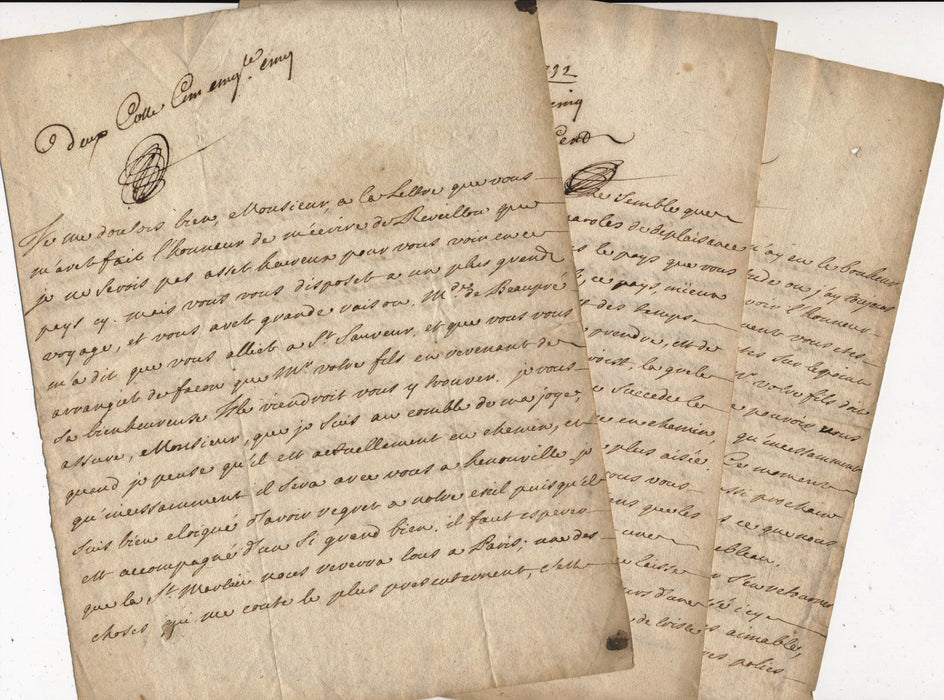 deux Cotte Cent cinq.te cinq
Je me doutois bien, Monsieur, a la Lettre que vous
m'avet fait l'honneur de m'écrire de Reveillon que
je ne serois pas asset heureux pour vous voir en ce
pays cy. mais vous vous disposet a un plus grand
voyage, et vous avet grande raison. Md.e de Beaupré
m'a dit que vous alliet a St Sauveur, et que vous vous
arranget de facon que Mr. votre fils en revenant de
sa bienheureuse Isle viendroit vous y trouver. je vous
assure, Monsieur, que je suis au comble de ma joye,
quand je pense qu'il est actuellement en chemin, et
qu'incessamment il sera avec vous a henouville. je
suis bien eloigné d'avoir regret a notre exil puisqu'il
est accompagné d'un si grand bien. il faut esperer
que la St. Martin nous reverra tous a Paris; une des
choses qui me coute le plus presentement, c'est
292
cinq
Cent
me semble que
paroles de deplaisance
le pays que vous
ce pays, mieux
des temps
prendre, et de
la quele
succede le
en chemin
plus aisée.
vous vous
que les
une
laisse
d'une
de loisir
n'ay eu le bonheur
ou j'ay toujours
avoir l'honneur
vous etes
sur le point
votre fils doit
pouvoir vous
qu'incessamment
Ce moment
prochain
ce que nous
s'en retourner
été icy
aimables,
polies